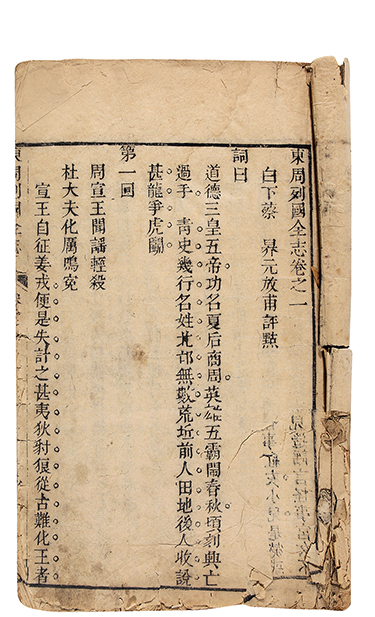 東周列國全志卷之一
白下蔡 昇元放甫評點
詞曰
道德三皇五帝功名夏后商周英雄五霸鬧春秋頃刻興亡
過手 青史幾行名姓北邙無數荒坵前人田地後人收說
甚龍爭虎鬭
第一回
周宣王聞謠輕殺
杜大夫化厲鳴寃
宣王自征姜戎便是失計之甚夷狄豺狼從古難化王者
東周列國全志